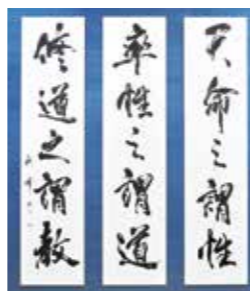 天命之謂性
率性之謂道
修道之謂教